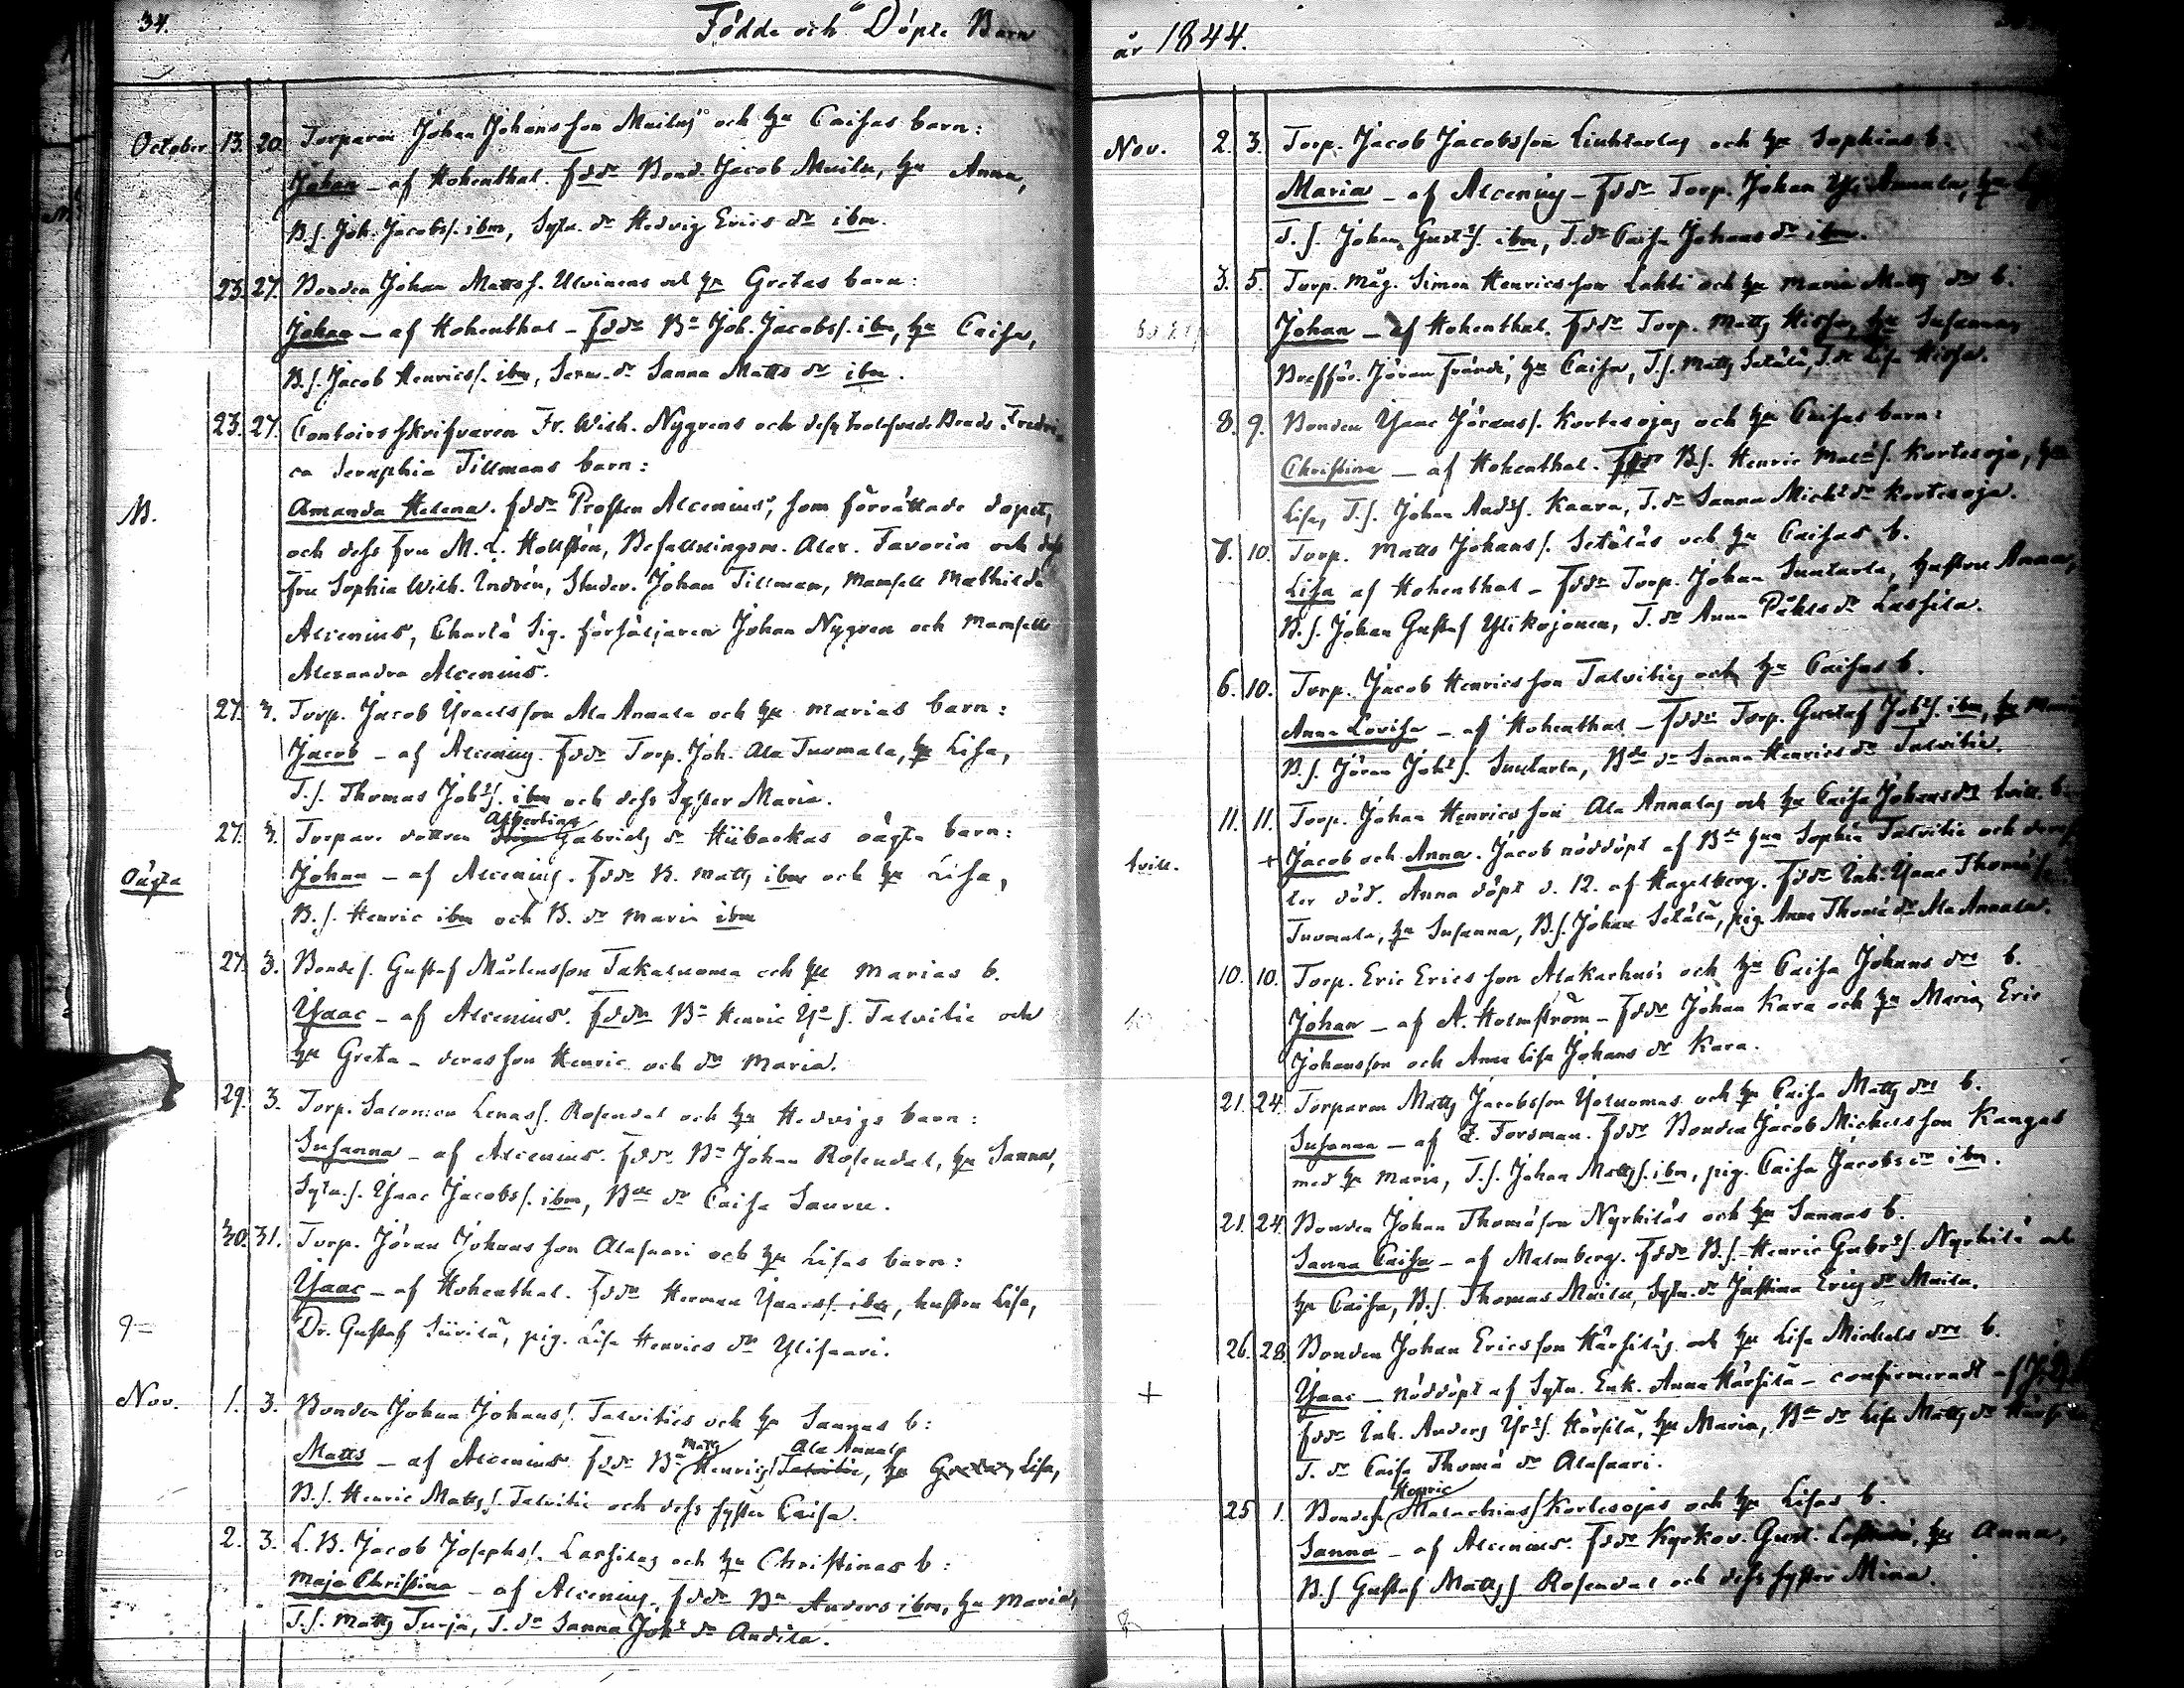 34.
Födde och Döpte Barn
October 13. 20. Torparen Johan Johansson Mailas och hu Caisas barn:
Johan - af Hohenthal. fddr Bond. Jacob Maila, hu Anna,
B.s. Joh. Jacobss. ibm, Sytn. dr Hedvig Erics dr ibm.
23. 27. Bonden Johan Mattss. Ulvinens och hu Gretas barn:
Johan - af Hohenthal - Fddr Bn Joh. Jacobss. ibm, hu Caisa,
B.s. Jacob Henricss. ibm, dr Sanna Matts dr ibm.
23. 27. Contoirs skrifvaren Fr. Wilh. Nygrens och dess Fredri-
ca Seraphia Tillmans barn:
N. Amanda Helena. fddr Prosten Alcenius, som förrättade dopet,
och dess fru M. L. Hollsten, Befallningsm. Alex. Favorin och dess
fru Sophia Wilh. Indrén, Studer. Johan Tillman, Mamsell Mathilda
Alcenius, Charta Sig. försäljaren Johan Nygren och Mamsell
Alexandra Alcenius.
27. 3. Torp. Jacob Israelsson Ala Annala och hu Marias barn:
Jacob - af Alcenius. fddr Torp. Joh. Ala Tuomala, hu Lisa,
T.s. Thomas Johs s. ibm och dess Syster Maria.
27. 3. Torpare dottren Albertina Gabriels dr Hübackas oägta barn:
Oägta Johan - af Alcenius. fddr B. Matts ibm och hu Lisa,
B.s. Henric ibm och B. dr Maria ibm
27. 3. Bondes. Gustaf Mårtensson Takaluoma och hu Marias b.
Isaac - af Alcenius. Fddr Bn Henric Is s. Talvitie och
hu Greta - deras son Henric och dr Maria.
29. 3. Torp. Salomon Lenass. Rosendal och hu Hedvigs barn:
Susanna - af Alcenius. fddr Bn Johan Rosendal, hu Sanna,
Sytn.s. Isaac Jacobss. ibm, Bde dr Caisa Sauru.
30. 31. Torp. Jöran Johansson Alasaari och hu Lisas barn:
Isaac - af Hohenthal. fddr Herman Isaacss. ibm, hustru Lisa,
Dr. Gustaf Siirilä, pig. Lisa Henrics dr Ylisaari.
Nov. 1. 3. Bonden Johan Johanss. Talvities och hu Sannas b:
Matts - af Alcenius fddr Bn Matts Henrics Ala Annala Talvitie, hu Greta, Lisa,
B.s. Henric Mattss. Talvitie och dess syster Caisa.
2. 3. L.B. Jacob Josephs. Lassilas och hu Christinas b:
Maja Christina - af Alcenius. fddr Bn Anders ibm, hu Maria,
T.s. Matts Turja, T. dr Sanna Johs dr Andila.
år 1844.
Nov. 2. 3. Torp. Jacob Jacobsson Liuhtarlas och hu Sophias b.
Maria - af Alcenius - fddr Torp. Johan Annala, hu
T.s. Johan Gusts s. ibm, T. dr Caisa Johans dr ibm.
3. 5. Torp. måg. Simon Henricsson Lahti och hu Maria Matts drs b.
Johan - af Hohenthal. fddr Torp. Matts Hissa, hu Susanna,
Jöran Frändi, hu Caisa, T.s. Matts Setälä, T. dr Lisa Hissa.
8. 9. Bonden Isaac Jöranss. Kortesojas och hu Caisas barn:
Christina - af Hohenthal. fddr B.s. Henric Mal s. Kortesoja, hu
Lisa, T.s. Johan Ands s. Kaara, T. dr Sanna Michs dr Kortesoja.
7. 10. Torp. Matts Johanss. Setäläs och hu Caisas b.
Lisa af Hohenthal - fddr Torp. Johan Luutarla, hustru Anna,
B.s. Johan Gustaf Ylikojonen, T. dr Anna Påhls dr Lassila.
6. 10. Torp. Jacob Henricsson Talvities och hu Caisas b.
Anna Lovisa - af Hohenthal - fddr Torp. Gustaf Johs s. ibm, hu Maria
B.s. Jöran Johs s. Luutarla, Bde dr Sanna Henrics dr Talvitie.
11. 11. Torp. Johan Henricsson Ala Annalas och hu Caisa Johans drs tvill. b
tvill. + Jacob och Anna. Jacob nöddöpt af Bde hun Sophia Talvitie och deref-
ter död. Anna döpt d. 12. af Hagelberg. fddr Inh. Isaac Thomæs.
Tuomala, hu Susanna, B.s. Johan Setälä, pig. Anna Thomæ dr Ala Annala.
10. 10. Torp. Eric Ericsson Alakarhus och hu Caisa Johans drs b.
Johan - af A. Holmström - fddr Johan Kara och hu Maria, Eric
Johansson och Anna Lisa Johans dr Kara.
21. 24. Torparen Matts Jacobsson Yoluomas och hu Caisa Matts drs b.
Susanna - af Z. Forsman. fddr Bonden Jacob Michelsson Kangas
med hu Maria, T.s. Johan Mattss. ibm, pig. Caisa Jacobs dr ibm.
21. 24. Bonden Johan Thomæson Nyrhiläs och hu Sannas b.
Sanna Caisa - af Malmberg. fddr B.s. Henric Gabrs s. Nyrhilä och
hu Caisa, B.s. Thomas Maila, Sytn. dr Justina Erics dr Maila.
26. 28. Bonden Johan Ericsson Härsiläs och hu Lisa Michels drs b.
+ Isaac - nöddöpt af Sytn. Enk. Anna Härsilä - confirmeradt af
fddr Inh. Anders Isrs s. Härsilä, hu Maria, Bde dr Lisa Matts dr Härsilä
T. dr Caisa Thomæ dr Alasaari.
25 1. Bondes. Henric Malachiass. Kortesojas och hu Lisas b.
Sanna - af Alcenius. fddr Kyrkov. Gust. hu Anna,
B.s Gustaf Mattss Rosendal och dess syster Mina.